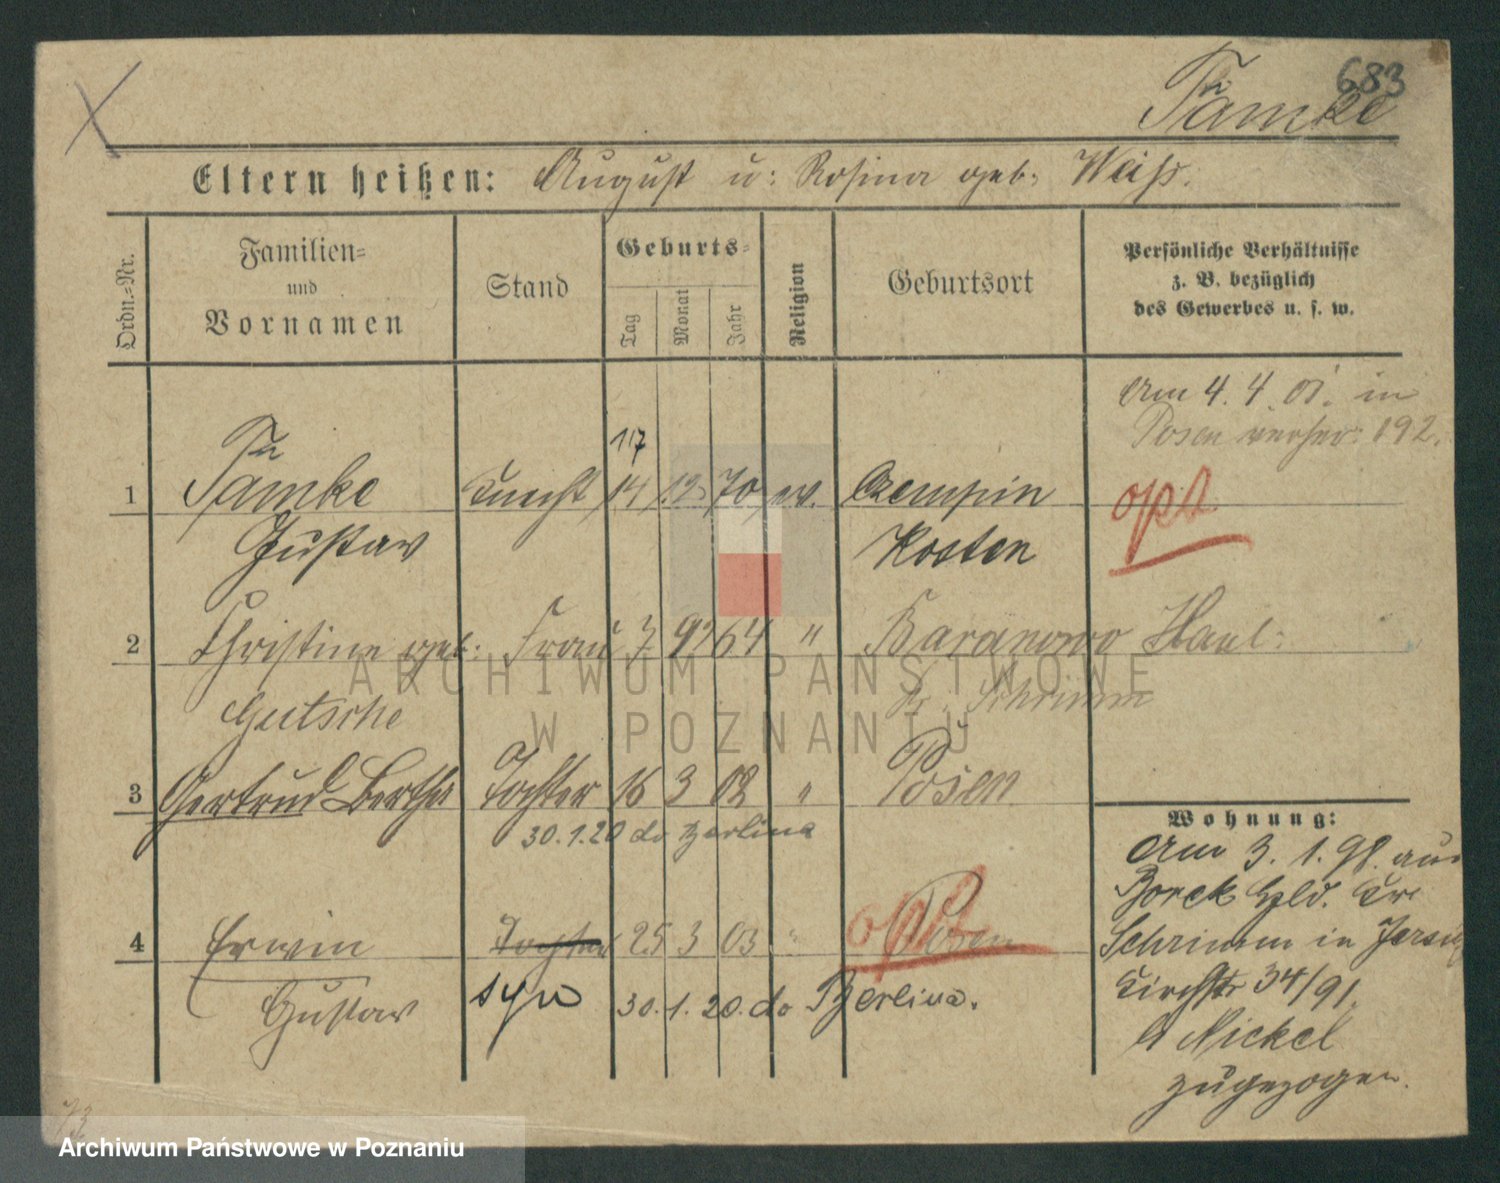 683
Tämke
Eltern heißen: August u: Rosina geb. Weiß.
Ordn.-Nr.
Familien-
und
Vornamen
Stand
Geburts-
Tag
Monat
Jahr
Religion
Geburtsort
Persönliche Verhältnisse
z. B. bezüglich
des Gewerbes u. s. w.
Am 4. 4. 01. in
Posen verheir: 192.
117
1 Tämke Knecht 14 12 70 ev. Czempin opt
Gustav Kosten
2 Christine geb: Frau 7 92 64 " Baranowo Haul:
Gutsche Kr. Schrimm
3 Gertrud Bertha Tochter 16 3 02 " Posen
30.1.20 do Berlina
4 Erwin Tochter 25 3 03 " Posen opt
Gustav syn 30.1.20. do Berlina.
Wohnung:
Am 3. 1. 98. aus
Borek Hld. Kr
Schrimm in Jersitz
Kirchstr 34/91.
b Nickel
zugezogen.
73
ARCHIWUM PAŃSTWOWE
W POZNANIU
Archiwum Państwowe w Poznaniu